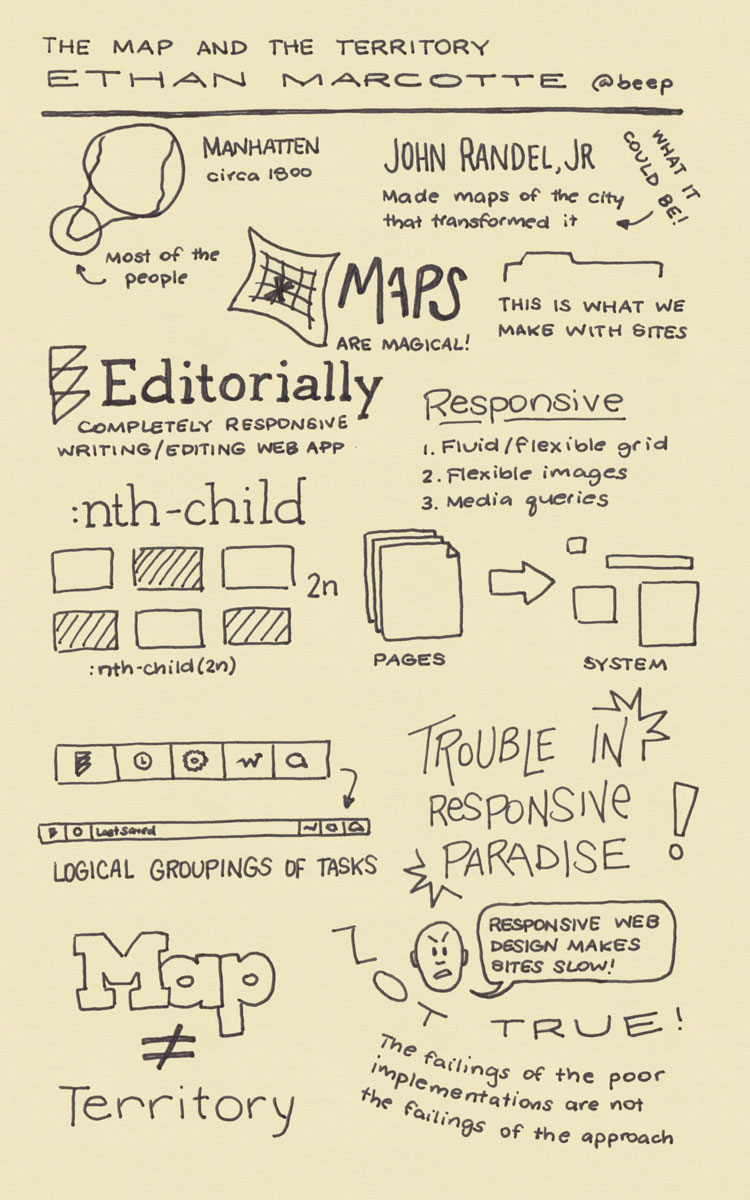 THE MAP AND THE TERRITORY
ETHAN MARCOTTE @beep
MANHATTEN
circa 1800
Most of the
people
JOHN RANDEL, JR
Made maps of the city
that transformed it
WHAT IT
COULD BE!
MAPS
ARE MAGICAL!
THIS IS WHAT WE
MAKE WITH SITES
Editorially
COMPLETELY RESPONSIVE
WRITING/EDITING WEB APP
Responsive
1. Fluid/flexible grid
2. Flexible images
3. Media queries
:nth-child
2n
:nth-child(2n)
PAGES
SYSTEM
Last saved
LOGICAL GROUPINGS OF TASKS
TROUBLE IN
RESPONSIVE
PARADISE!
Map
≠
Territory
RESPONSIVE WEB
DESIGN MAKES
SITES SLOW!
NOT TRUE!
The failings of the poor
implementations are not
the failings of the approach